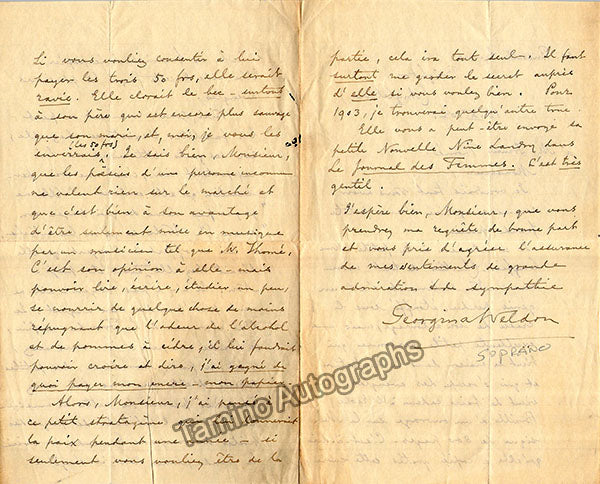 Si vous vouliez consentir à lui
payer les trois 50 frs, elle serait
ravie. Elle clorait le bec – surtout
à son père qui est encore plus sauvage
que son mari, et, moi, je vous les
enverrais (les 50 frs). Je sais bien, Monsieur,
que les poésies d'une personne inconnue
ne valent rien sur le marché et
que c'est bien à son avantage
d'être seulement mise en musique
par un musicien tel que M. Thomé.
C'est son opinion à elle – mais
pouvoir lire, écrire, étudier un peu,
se nourrir de quelque chose de moins
répugnant que l'odeur de l'alcohol
et de pommes à cidre, il lui faudrait
pouvoir croire et dire, j'ai gagné de
quoi payer mon encre – mon papier.
Alors, Monsieur, j'ai pensé à
ce petit stratagème qui lui donnerait
la paix pendant une année – si
seulement vous vouliez être de la
partie, cela ira tout seul. Il faut
surtout me garder le secret auprès
d'elle si vous voulez bien. Pour
1903, je trouverai quelqu'autre truc.
Elle vous a peut-être envoyé sa
petite Nouvelle Nine Landry dans
Le Journal des Femmes. C'est très
gentil.
J'espère bien, Monsieur, que vous
prendrez ma requête de bonne part
et vous prie d'agréer l'assurance
de mes sentiments de grande
admiration & de sympathie
Georgina Weldon
SOPRANO
Tamino Autographs